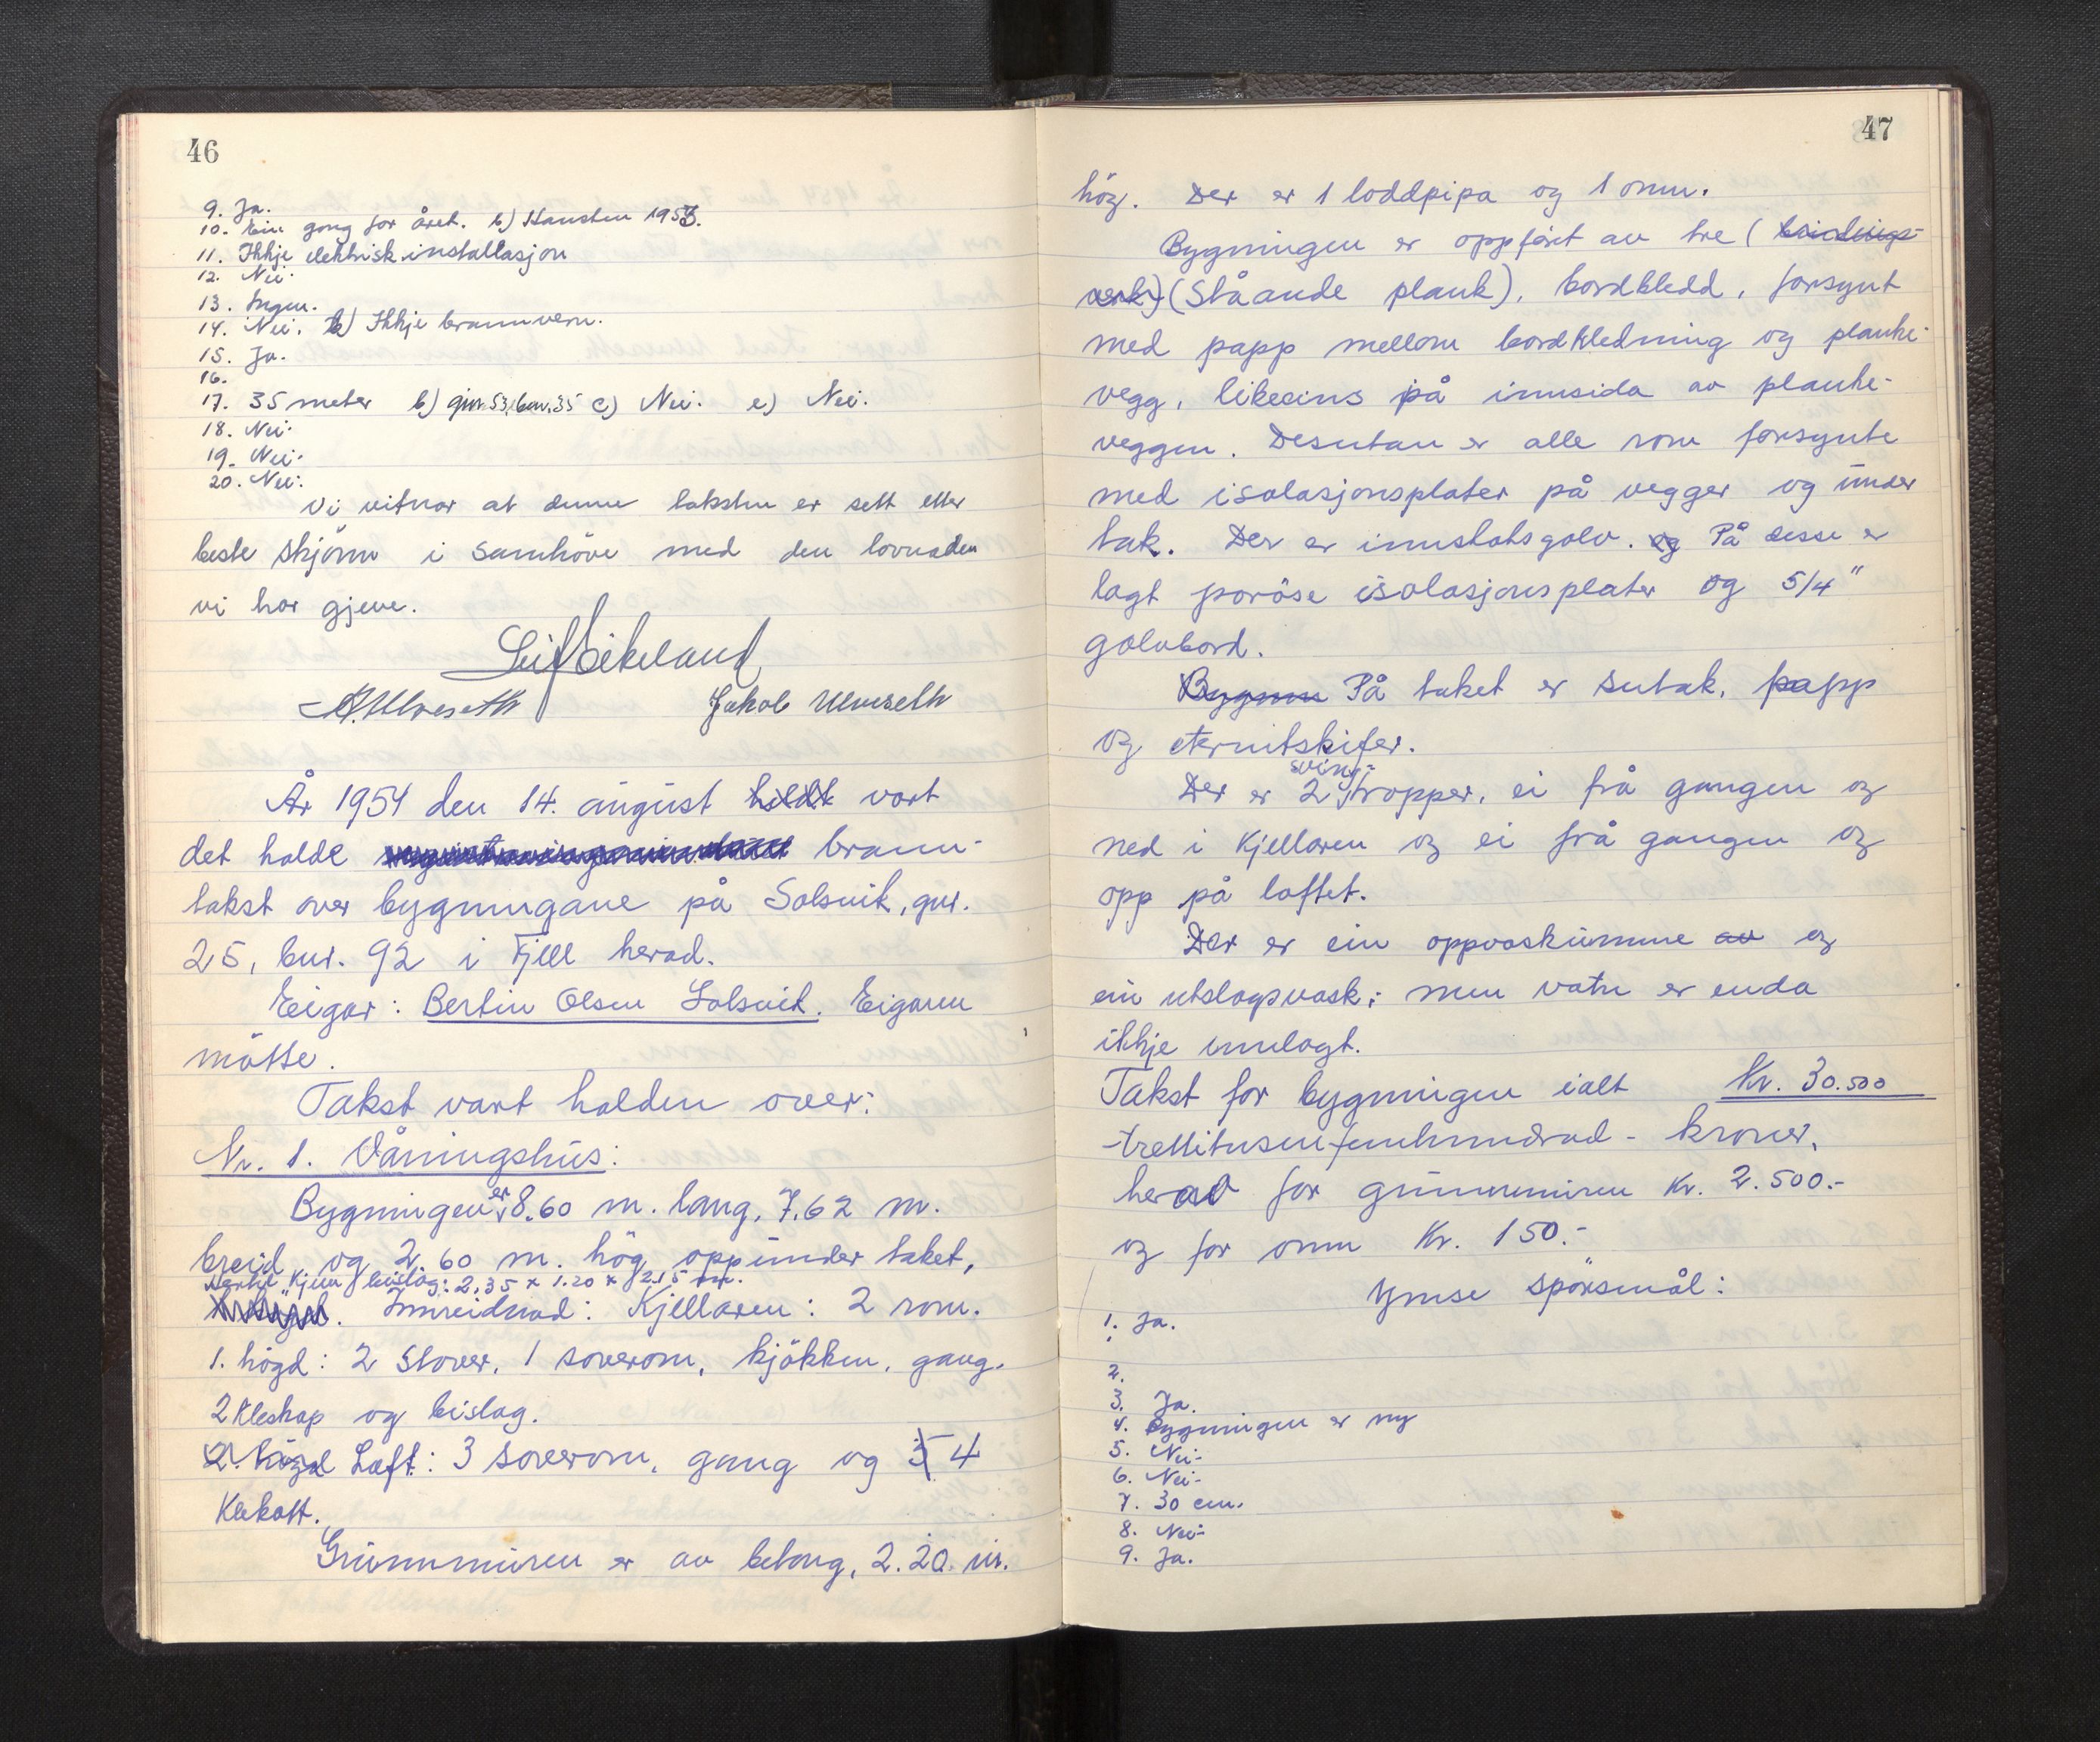 46
9. Ja.
10. Ein gong for året. b) Hausten 1953.
11. Ikkje elektrisk installasjon
12. Nei.
13. Ingen.
14. Nei. b) Ikkje brannvern.
15. Ja.
16.
17. 35 meter b) gnr. 53, bnr. 35 c) Nei. e) Nei.
18. Nei.
19. Nei.
20. Nei.
Vi vitnar at denne taksten er sett etter
beste skjønn i samhöve med den lovnaden
vi har gjeve.
Leif Eikeland
A. Ulveseth Jakob Ulveseth
År 1954 den 14. august holdt vart
det halde brann-
takst over bygningane på Solsvik, gnr.
25, bnr. 92 i Fjell herad.
Eigar: Bertin Olsen Solsvik. Eigaren
mötte.
Takst vart halden over:
Nr. 1. Våningshus:
Bygningen er 8.60 m. lang, 7.62 m.
breid og 2.60 m. hög oppunder taket,
Dertil kjem bislag: 2,35 x 1.20 x 2.15 m.
Innreidnad: Kjellaren: 2 rom.
1. högd: 2 stover, 1 soverom, kjökken, gang.
2 kleskap og bislag.
2. högd Loft: 3 soverom, gang og 3 4
klekott.
Grunnmuren er av betong, 2.20 m.
47
hög. Der er 1 loddpipa og 1 omn.
Bygningen er oppfört av tre (bindings-
verk) (Ståande plank), bordkledd, forsynt
med papp mellom bordkledning og planke-
vegg, likeeins på innsida av planke-
veggen. Desutan er alle rom forsynte
med isolasjonsplater på vegger og under
tak. Der er innskotsgolv. og På desse er
lagt poröse isolasjonsplater og 5/4"
golvbord.
Bygnin På taket er sutak, papp
og eternitskifer.
Der er 2 sving-tropper, ei frå gangen og
ned i kjellaren og ei frå gangen og
opp på loftet.
Der er ein oppvaskumme av og
ein utslagsvask; men vatn er enda
ikkje innlagt.
Takst for bygningen ialt Kr. 30.500
trettitusenfemhundrad - kroner,
herav for grunnmuren Kr. 2.500.-
og for omn Kr. 150.-
Ymse spörsmål:
1. Ja.
2.
3. Ja.
4. Bygningen er ny
5. Nei.
6. Nei.
7. 30 cm.
8. Nei.
9. Ja.